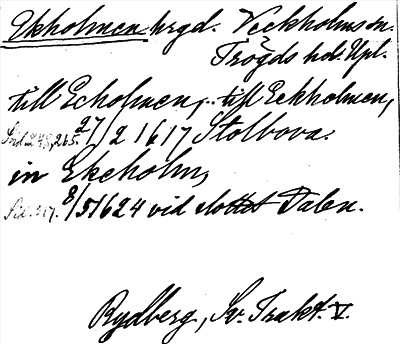 Ekholmen hrgd. Veckholms sn.
Trögds hd. Upl.
till Echolmen, till Eckholmen,
265. 27/2 1617 Stolbova.
in Ekeholm,
S. 317. 8/5 1624 vid slottet Dalen.
Rydberg, Sv. Trakt. V.